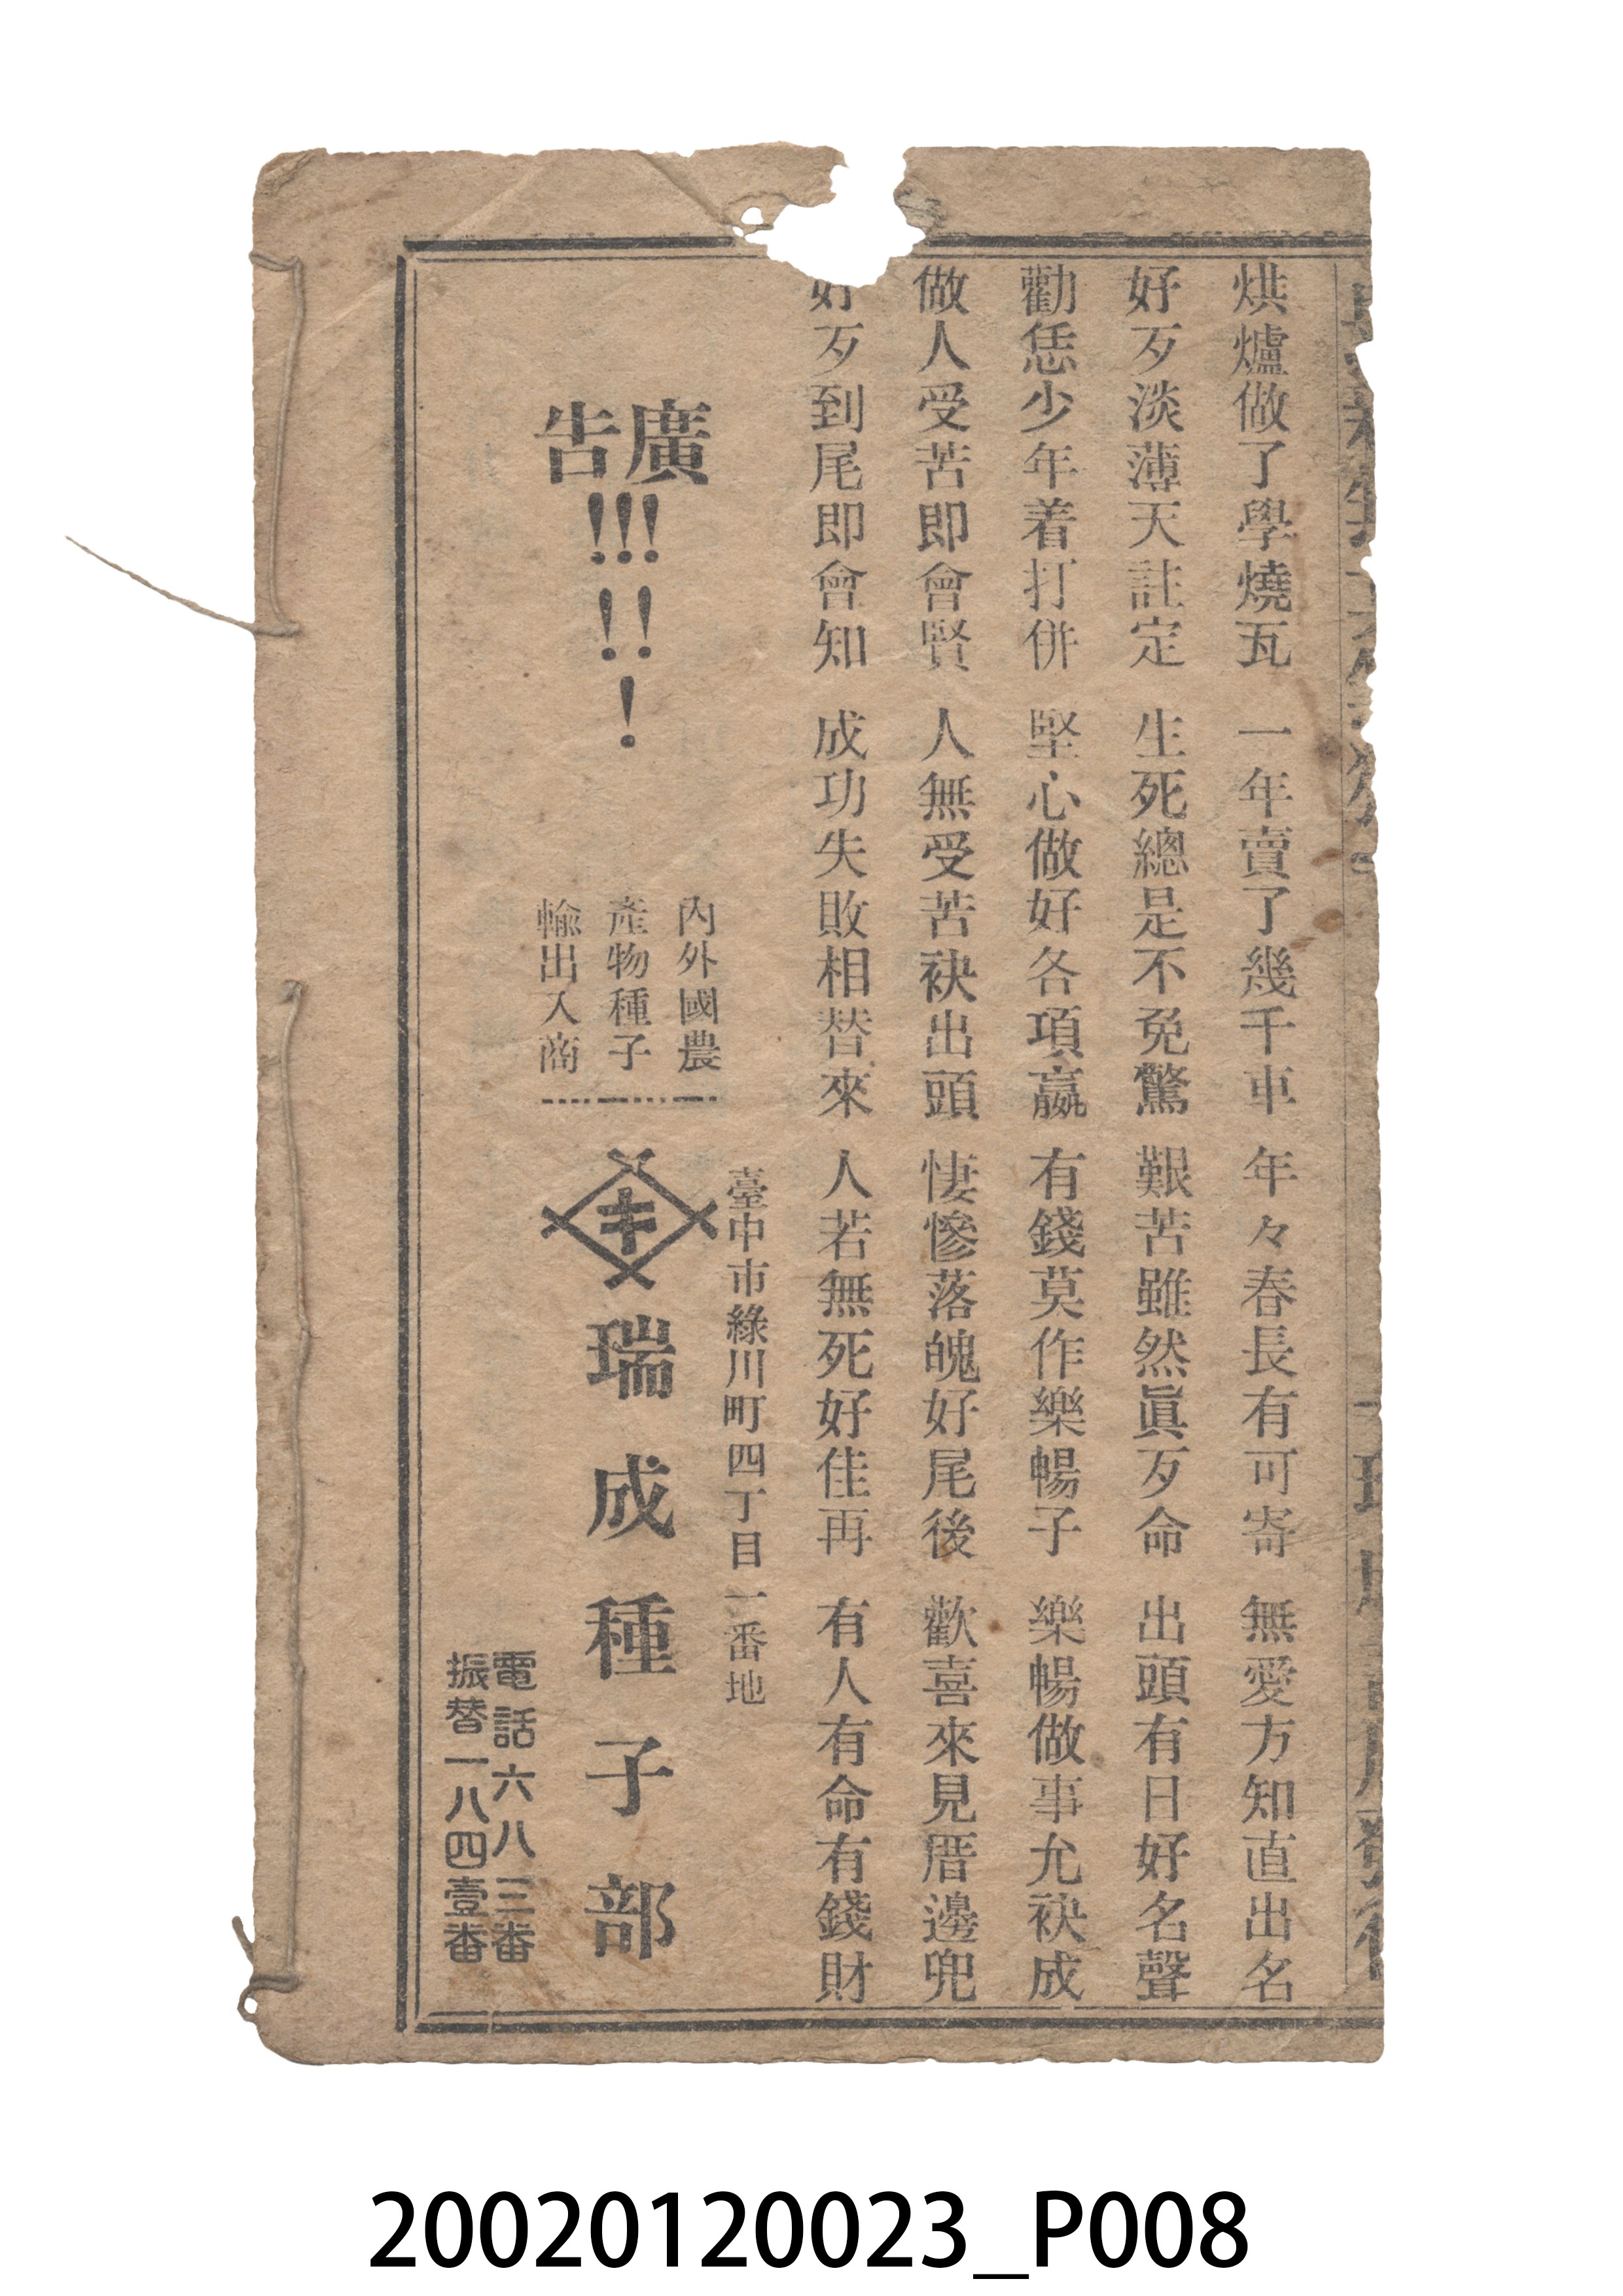 烘爐做了學燒瓦　一年賣了幾千車　年々春長有可寄　無愛方知直出名
好歹淡薄天註定　生死總是不免驚　艱苦雖然眞歹命　出頭有日好名聲
勸恁少年着打併　堅心做好各項嬴　有錢莫作樂暢子　樂暢做事允袂成
做人受苦即會賢　人無受苦袂出頭　悽慘落魄好尾後　歡喜來見厝邊兜
好歹到尾即會知　成功失敗相替來　人若無死好佳再　有人有命有錢財
廣告!!!!!!
內外國農
產物種子
輸出入商
臺中市綠川町四丁目一番地
キ
瑞成種子部
電話六八三番
振替一八四壹番
20020120023_P008